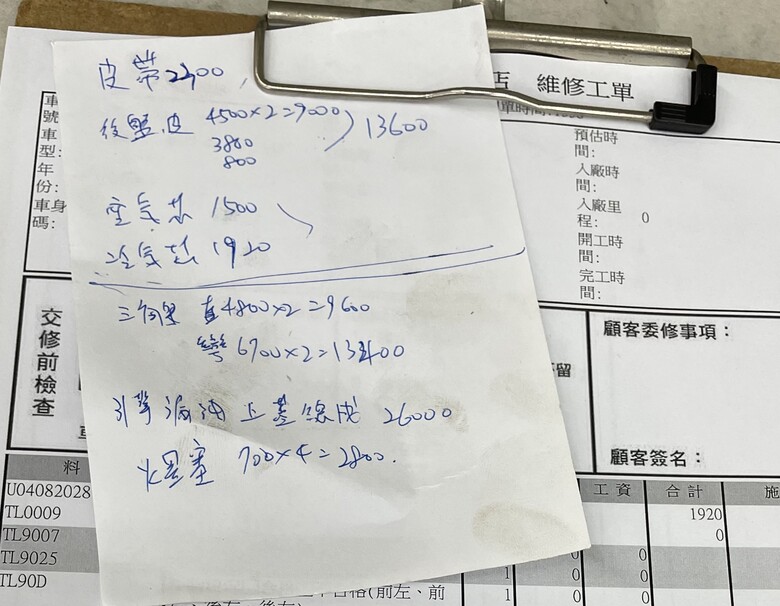 皮帶2200
後盤皮 4500×2=9000
3800
800
13600
空気芯 1500
冷気芯 1920
三角架 直4800×2=9600
彎6700×2=13400
引擎漏油 上蓋總成 26000
火星塞 700×4=2800.
店 維修工單
車
號
車
型:
年
份:
車身
碼:
預估時
間:
入廠時
間:
入廠里
程: 0
開工時
間:
完工時
間:
交修前檢查
顧客委修事項：
留
顧客簽名：
料 工資 合計 施
U04082028 1920
TL0009 0
TL9007 0
TL9025 1 0 0
TL90D 1 0 0
(前左、前